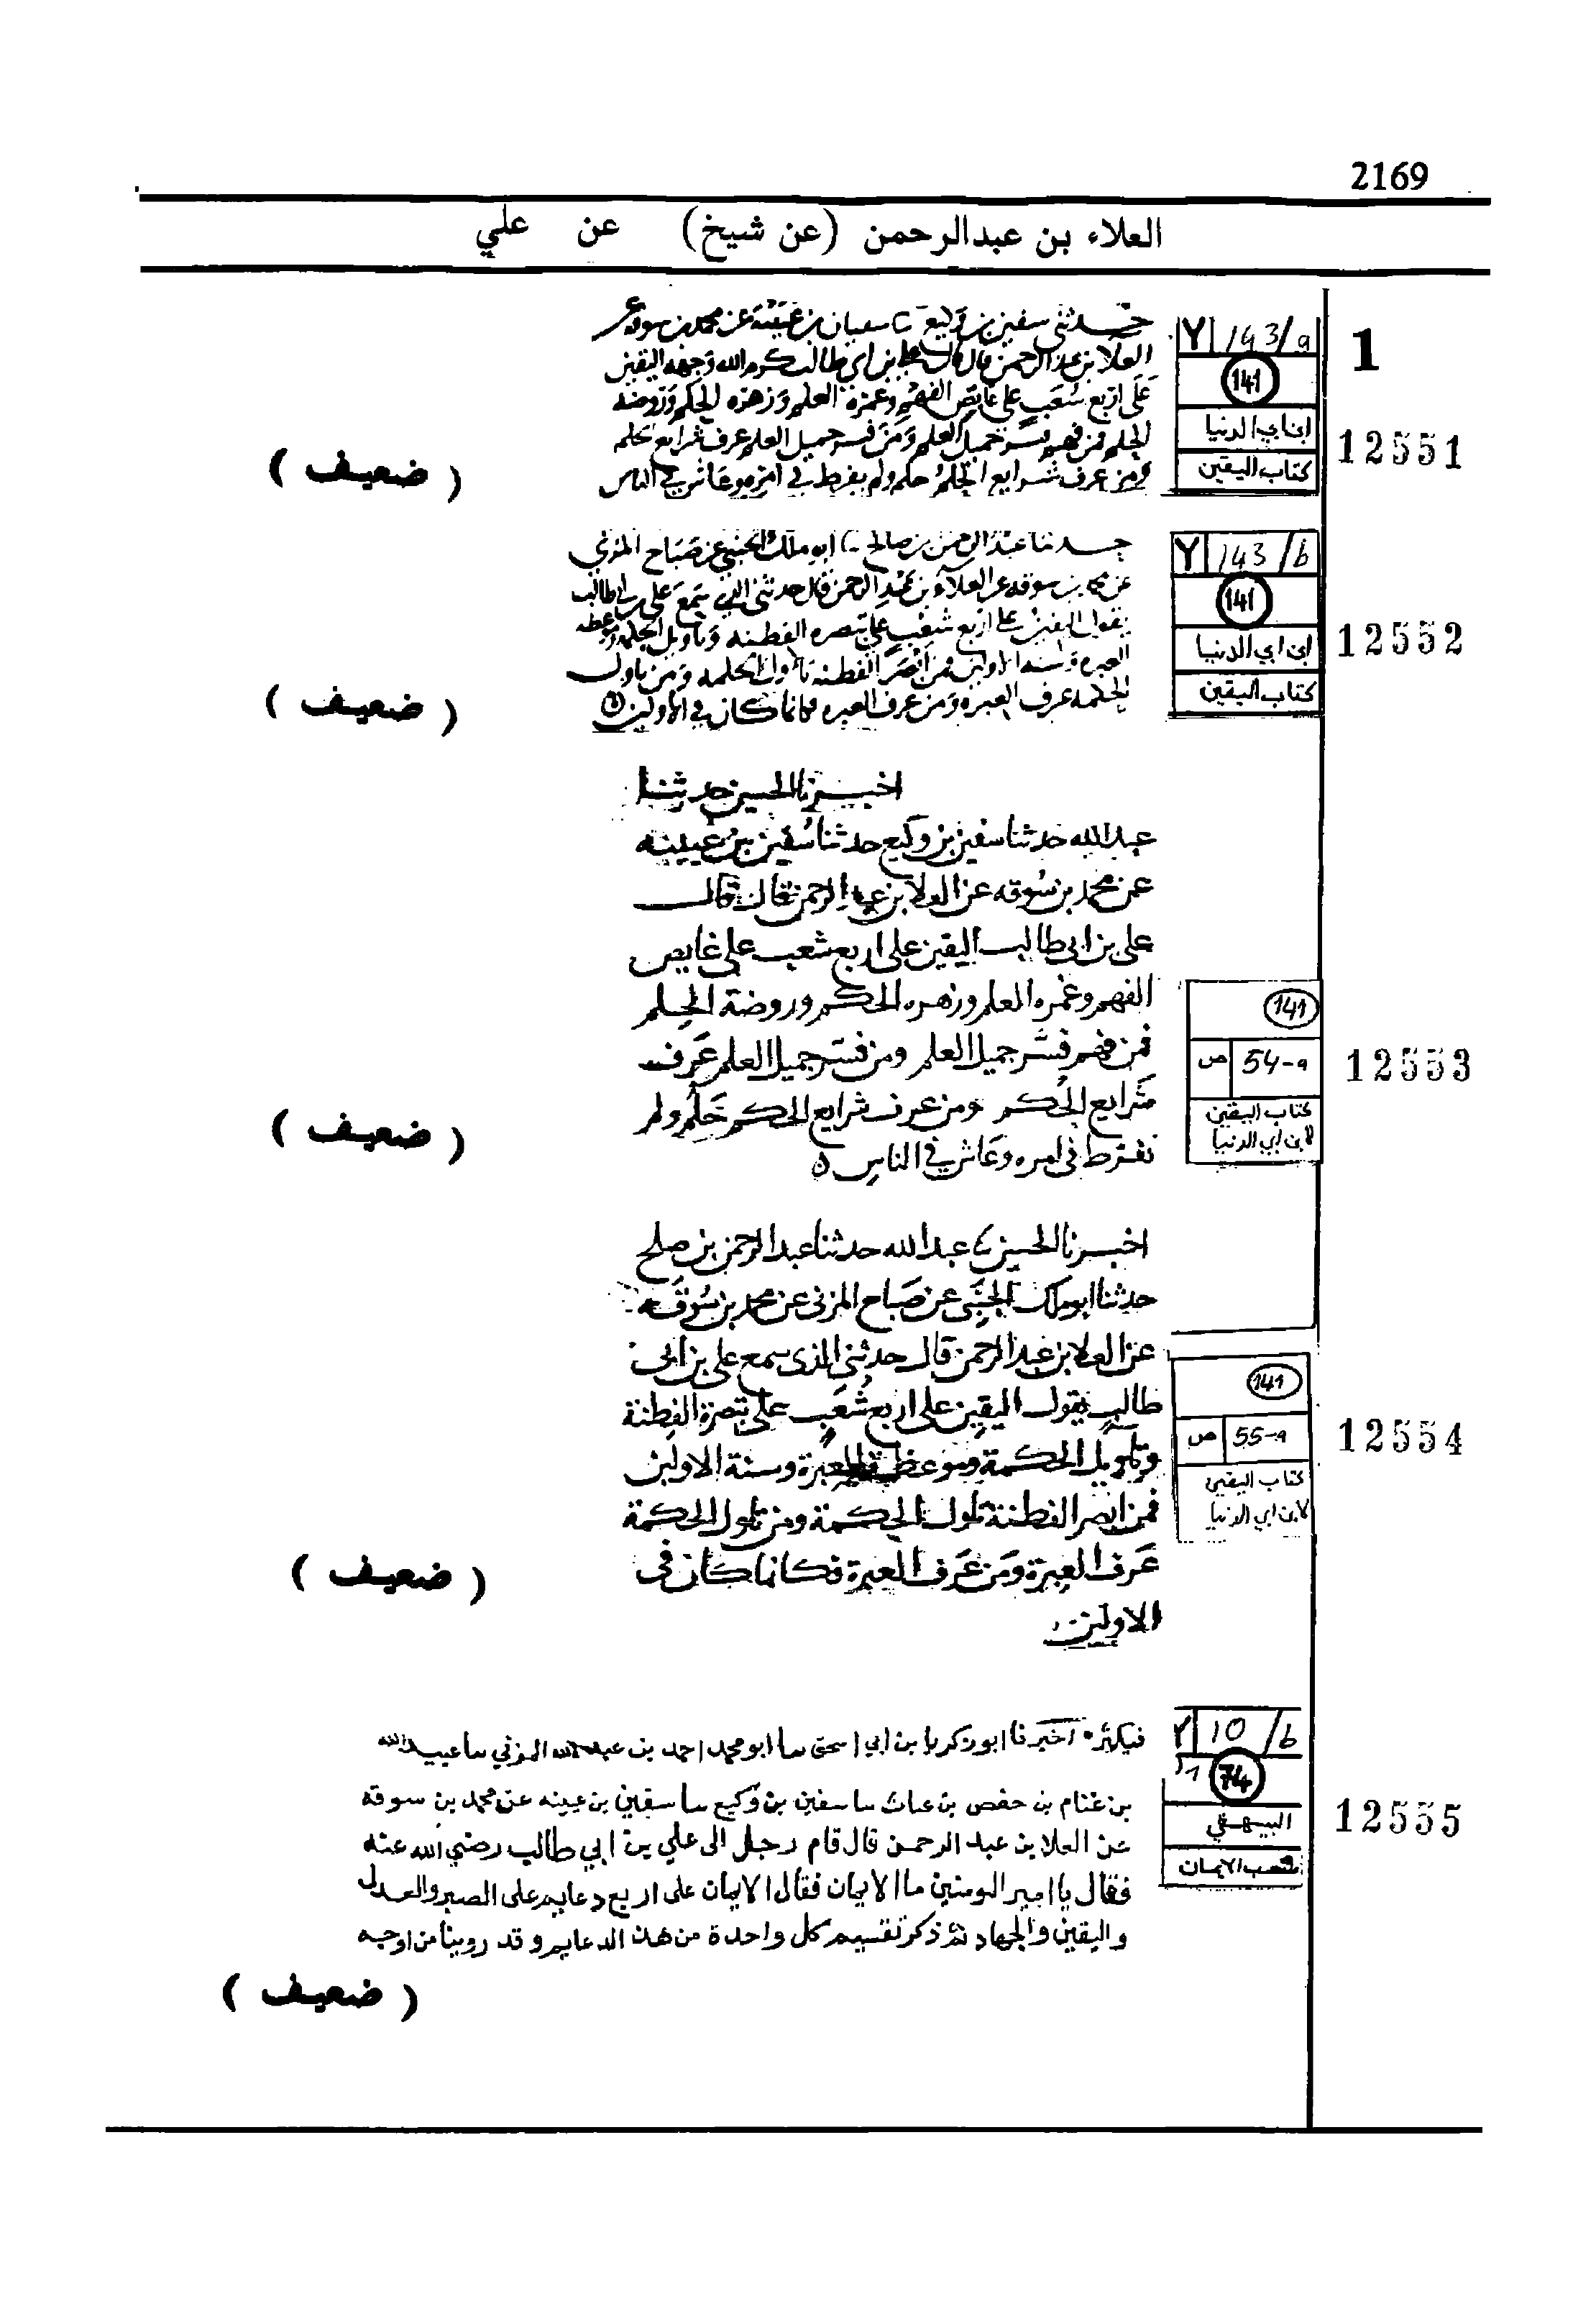 2169
العلاء بن عبدالرحمن (عن شيخ) عن علي
1
143/a
141
ابن ابي الدنيا
كتاب اليقين
12551
حدثني سفين بن وكيع سفيان بن عيينة عن محمد بن سوقه عن
العلا بن عبد الرحمن قال قال علي بن ابي طالب كرم الله وجهه اليقين
على اربع شعب على غايص الفهم وغمرة العلم وزهرة الحكم وروضة
الحلم فمن فهم فسر جميل العلم ومن فسر جميل العلم عرف شرايع الحلم
ومن عرف شرايع الحلم حكم ولم يفرط في امره وعاش في الناس
( ضعيف )
143/b
141
ابن ابي الدنيا
كتاب اليقين
12552
حدثنا عبد الرحمن بن صالح ابو ملك الجنبي عن صباح المزني
عن محمد بن سوقه عن العلاء بن عبد الرحمن قال حدثني الذي سمع علي بن ابي طالب
يقول اليقين على اربع شعب على تبصره الفطنه وتاويل الحكمه وموعظه
العبره وسنه الاولين فمن ابصر الفطنه تاول الحكمه ومن تاول
الحكمه عرف العبره ومن عرف العبره فكانما كان في الاولين
( ضعيف )
اخبرنا الحسين حدثنا
عبد الله حدثنا سفين بن وكيع حدثنا سفين بن عيينه
عن محمد بن سوقه عن العلا بن عبد الرحمن قال قال
علي بن ابي طالب اليقين على اربع شعب على غايص
الفهم وغمره العلم وزهره الحكم وروضة الحلم
فمن فهم فسر جميل العلم ومن فسر جميل العلم عرف
شرايع الحكم ومن عرف شرايع الحكم حلم ولم
يفرط في امره وعاش في الناس ه
141
ص 54-a
كتاب اليقين
لابن ابي الدنيا
12553
( ضعيف )
اخبرنا الحسين عبد الله حدثنا عبد الرحمن بن صلح
حدثنا ابو ملك الجنبي عن صباح المزني عن محمد بن سوقه
عن العلا بن عبد الرحمن قال حدثني الذي سمع علي بن ابي
طالب يقول اليقين على اربع شعب على تبصرة الفطنة
وتاويل الحكمة وموعظة العبرة وسنة الاولين
فمن ابصر الفطنة تاول الحكمة ومن تاول الحكمة
عرف العبرة ومن عرف العبرة فكانما كان في
الاولين
141
ص 55-a
كتاب اليقين
لابن ابي الدنيا
12554
( ضعيف )
10/b
74
البيهقي
شعب الايمان
12555
اخبرنا ابو زكريا بن ابي اسحق سا ابو محمد احمد بن عبد الله المزني سا عبيد الله
بن غنام بن حفص بن غياث سا سفين بن وكيع سا سفين بن عيينه عن محمد بن سوقة
عن العلا بن عبد الرحمن قال قام رجل الى علي بن ابي طالب رضي الله عنه
فقال يا امير المومنين ما الايمان فقال الايمان على اربع دعايم على الصبر والعدل
واليقين والجهاد ثم ذكر تقسيم كل واحدة من هذه الدعايم وقد روينا من اوجه
( ضعيف )